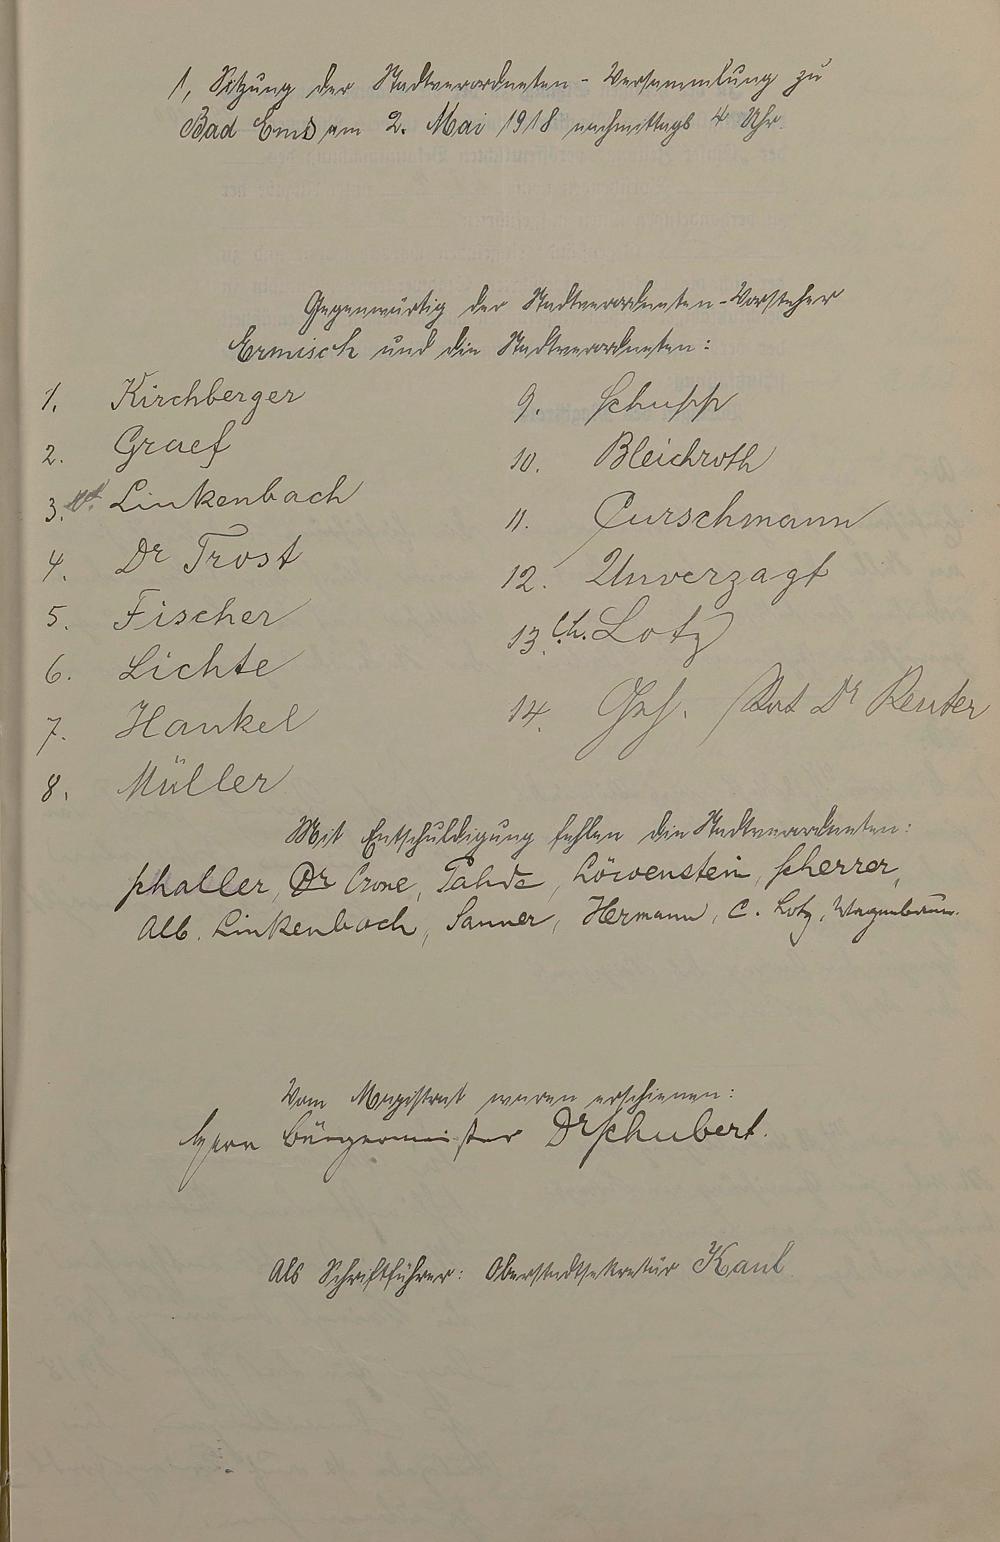 1, Sitzung der Stadtverordneten-Versammlung zu
Bad Ems am 2. Mai 1918 nachmittags 4 Uhr.
Gegenwärtig der Stadtverordneten-Vorsteher
Ermisch und die Stadtverordneten:
1. Kirchberger
2. Graef
3. Linkenbach
4. Dr Trost
5. Fischer
6. Lichte
7. Hankel
8. Müller
9. Schupp
10. Bleichroth
11. Curschmann
12. Unverzagt
13. Ch. Lotz
14. Geh. Rat Dr Reuter
Mit Entschuldigung fehlen die Stadtverordneten:
Schaller, Dr Crone, Pahde, Löwenstein, Scherrer,
Alb. Linkenbach, Sanner, Hermann, C. Lotz, Wagenbaum.
Vom Magistrat waren erschienen:
Herr Bürgermeister Dr Schubert.
Als Schriftführer: Oberstadtsekretär Kaul